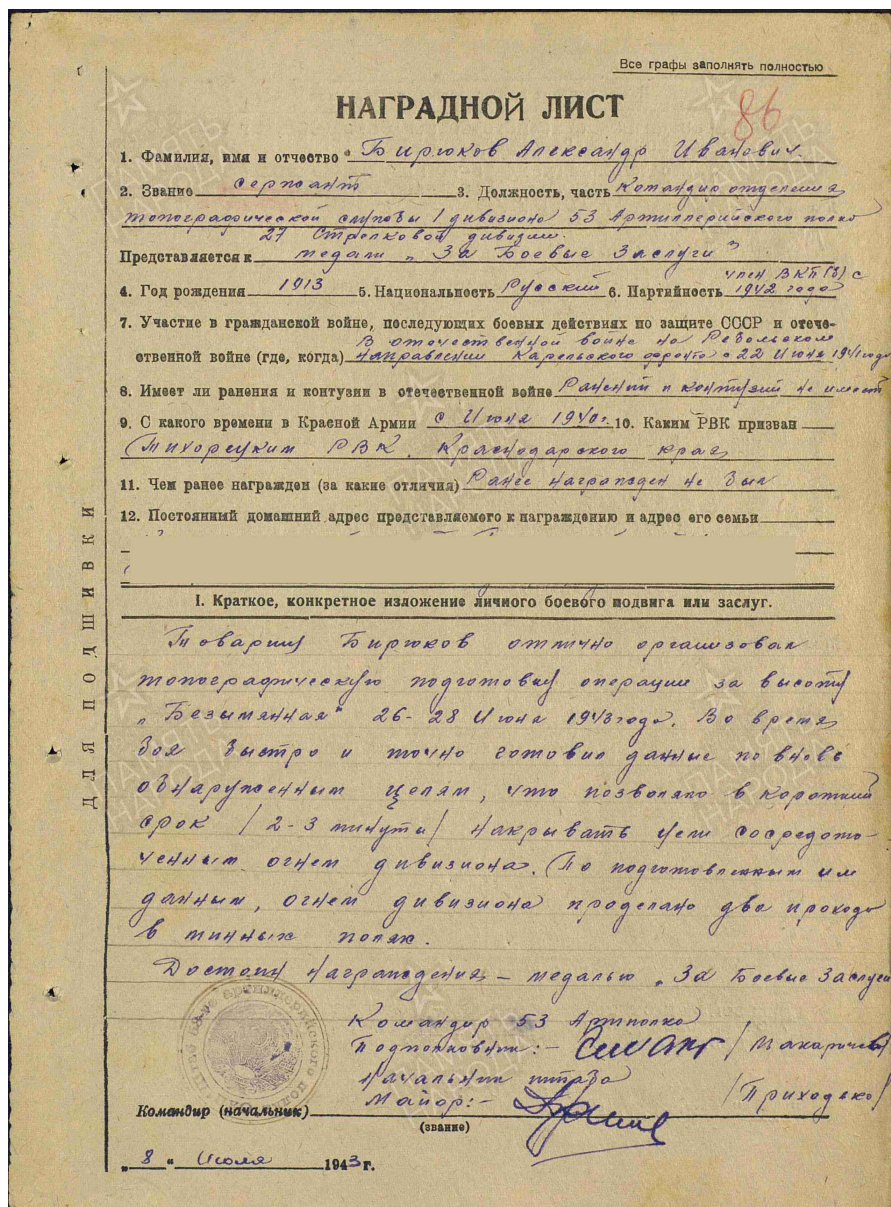 Все графы заполнять полностью
НАГРАДНОЙ ЛИСТ
86
1. Фамилия, имя и отчество Бирюков Александр Иванович.
2. Звание сержант 3. Должность, часть Командир отделения
топографической службы 1 дивизиона 53 Артиллерийского полка
27 Стрелковой дивизии.
Представляется к медали „За Боевые Заслуги"
4. Год рождения 1913 5. Национальность Русский 6. Партийность член ВКП(б) с 1942 года
7. Участие в гражданской войне, последующих боевых действиях по защите СССР и отече-
ственной войне (где, когда) В отечественной войне на Ребольском
направлении Карельского фронта с 22 Июня 1941 года
8. Имеет ли ранения и контузии в отечественной войне Ранений и контузий не имеет
9. С какого времени в Красной Армии с Июня 1940г. 10. Каким РВК призван
Тихорецким РВК. Краснодарского края
11. Чем ранее награжден (за какие отличия) Ранее награжден не был
12. Постоянный домашний адрес представляемого к награждению и адрес его семьи
I. Краткое, конкретное изложение личного боевого подвига или заслуг.
Товарищ Бирюков отлично организовал
топографическую подготовку операции за высоту
„Безымянная" 26-28 Июня 1943 года. Во время
боя быстро и точно готовил данные по вновь
обнаруженным целям, что позволяло в короткий
срок /2-3 минуты/ накрывать цели сосредото-
ченным огнем дивизиона. По подготовленным им
данным, огнем дивизиона проделано два прохода
в минных полях.
Достоин награждения – медалью „За Боевые Заслуги
Командир 53 Артполка
Подполковник:- /Макарычев/
Начальник штаба
Майор:- /Приходько/
Командир (начальник)
(звание)
„8" Июля 1943 г.
ДЛЯ ПОДШИВКИ
ПАМЯТЬ НАРОДА